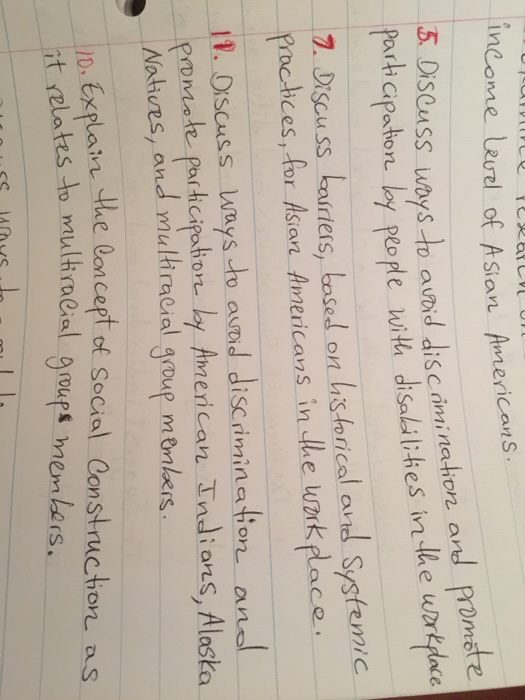 income level of Asian Americans.
5. Discuss ways to avoid discrimination and promote
participation by people with disabilities in the workplace
7. Discuss barriers, based on historical and systemic
practices, for Asian Americans in the workplace.
11. Discuss ways to avoid discrimination and
promote participation by American Indians, Alaska
Natives, and multiracial group members.
10. Explain the Concept of Social Construction as
it relates to multiracial groups members.